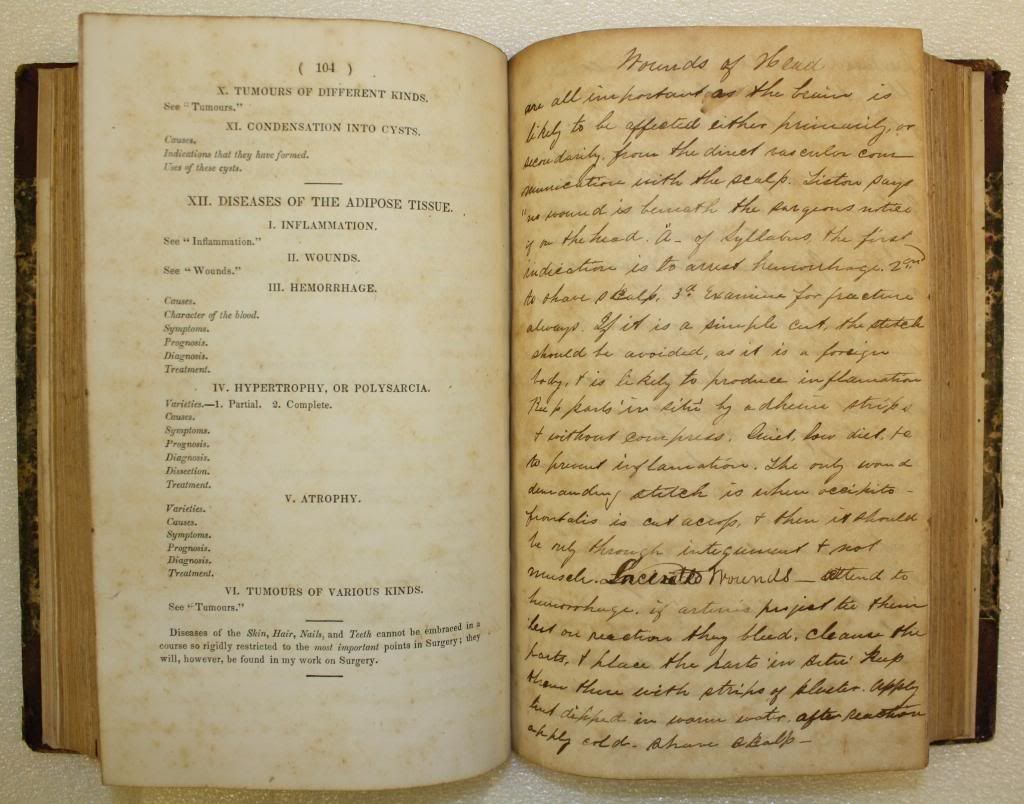 ( 104 )
X. TUMOURS OF DIFFERENT KINDS.
See "Tumours."
XI. CONDENSATION INTO CYSTS.
Causes.
Indications that they have formed.
Uses of these cysts.
XII. DISEASES OF THE ADIPOSE TISSUE.
I. INFLAMMATION.
See "Inflammation."
II. WOUNDS.
See "Wounds."
III. HEMORRHAGE.
Causes.
Character of the blood.
Symptoms.
Prognosis.
Diagnosis.
Treatment.
IV. HYPERTROPHY, OR POLYSARCIA.
Varieties.—1. Partial. 2. Complete.
Causes.
Symptoms.
Prognosis.
Diagnosis.
Dissection.
Treatment.
V. ATROPHY.
Varieties.
Causes.
Symptoms.
Prognosis.
Diagnosis.
Treatment.
VI. TUMOURS OF VARIOUS KINDS.
See "Tumours."
Diseases of the Skin, Hair, Nails, and Teeth cannot be embraced in a
course so rigidly restricted to the most important points in Surgery; they
will, however, be found in my work on Surgery.
Wounds of Head
are all important as the brain is
likely to be affected either primarily, or
secondarily, from the direct vascular com
munication with the scalp. Liston says
"no wound is beneath the surgeons notice
if on the head. A- of Syllabus, the first
indication is to arrest hemorrhage. 2nd
to shave scalp, 3d Examine for fracture
always. If it is a simple cut, the stitch
should be avoided, as it is a foreign
body, & is likely to produce inflamation
Keep parts in situ by adhesive strips
& without compress. Quiet, low diet, &c
to prevent inflamation. The only wound
demanding stitch is when occipito-
frontalis is cut across, & then it should
be only through integument & not
muscle. Lacerated Wounds — attend to
hemorrhage, if arteries project tie them
lest on reaction they bleed, cleanse the
parts, & place the parts in situ keep
them there with strips of plaster. Apply
lint dipped in warm water, after reaction
apply cold. shave scalp—